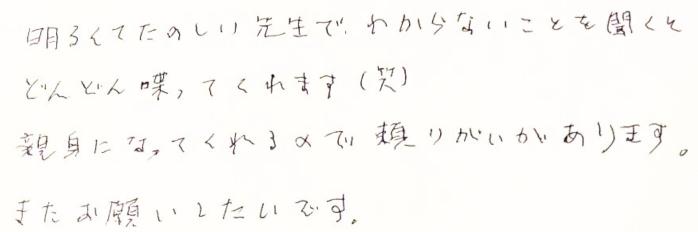 明るくてたのしい先生で、わからないことを聞くと
どんどん喋ってくれます(笑)
親身になってくれるので頼りがいがあります。
またお願いしたいです。